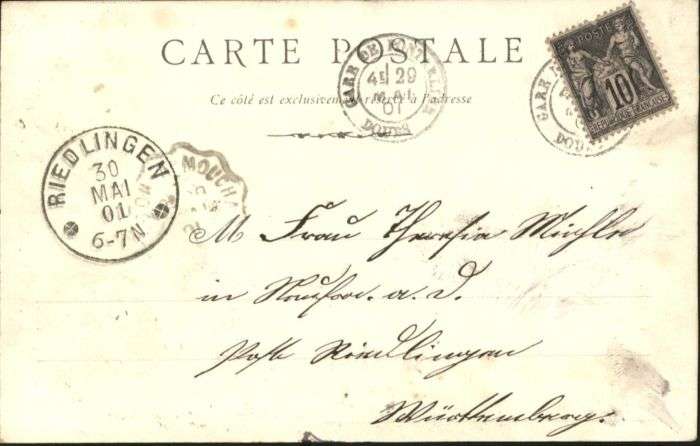 CARTE POSTALE
Ce côté est exclusivement réservé à l'adresse
GARE DE
4E 29
MAI
01
DOUBS
POSTE
10
REPUBLIQUE FRANÇAISE
GARE
DOUBS
RIEDLINGEN
30
MAI
01
6-7N
MOUCHA
M Frau Theresia
in a. D.
Poste Riedlingen
Württemberg.